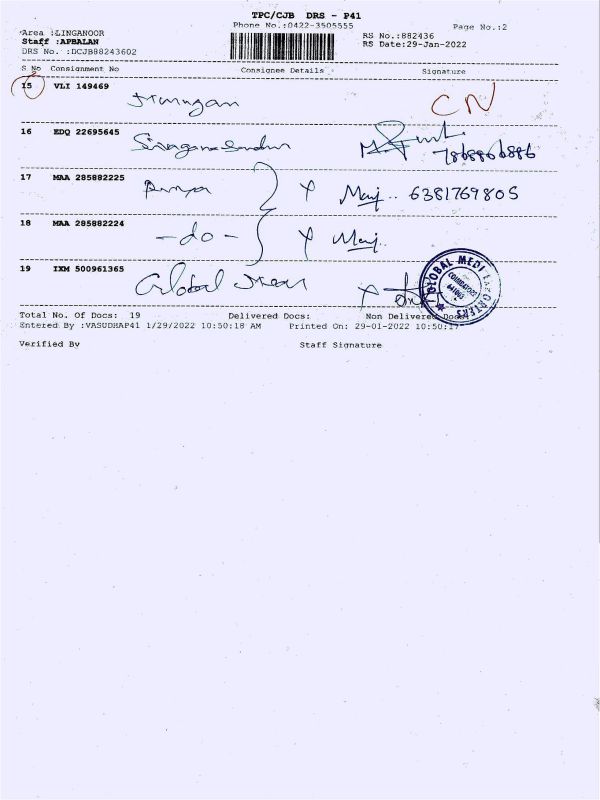 TPC/CJB DRS - P41
Phone No.:0422-3505555
Page No.:2
Area :LINGANOOR
Staff :APBALAN
DRS No. :DCJB88243602
RS No.:882436
RS Date:29-Jan-2022
S No Consignment No Consignee Details Signature
15 VLI 149469 Murugan CN
16 EDQ 22695645
7868866886
17 MAA 285882225 6381769805
18 MAA 285882224 -do-
19 IXM 500961365 Global
GLOBAL MEDI EXPORTERS
COIMBATORE
Total No. Of Docs: 19 Delivered Docs: Non Delivered Docs:
Entered By :VASUDHAP41 1/29/2022 10:50:18 AM Printed On: 29-01-2022 10:50:17
Verified By Staff Signature